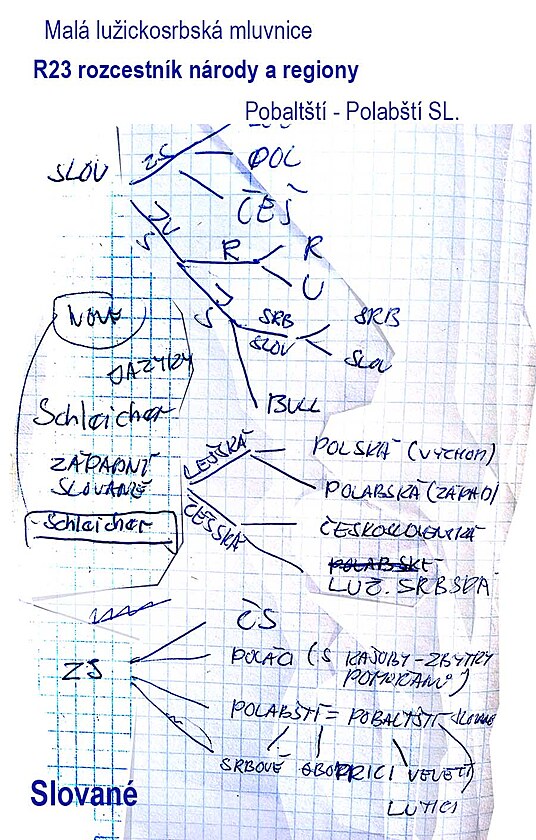 Malá lužickosrbská mluvnice
R23 rozcestník národy a regiony
Pobaltští - Polabští SL.
SLOV
ZS
POL
ČEŠ
JV
S
R
R
U
J
S
SRB
SLOV
SRB
SLOV
BULL
NOVÉ
JAZYKY
Schleicher
ZÁPADNÍ
SLOVANÉ
Schleicher
LEŠSKÁ
POLSKÁ (VÝCHOD)
POLABSKÁ (ZÁPAD)
ČESSKÁ
ČESKOSLOVENSKÁ
POLABSKÉ
LUŽ. SRBSKÁ
ZS
ČS
POLÁCI (S KAŠUBY - ZBYTKY
POMOŘANŮ)
POLABŠTÍ = POBALTŠTÍ SLOVANÉ
SRBOVÉ OBODRICI VELETI
LUTICI
Slované